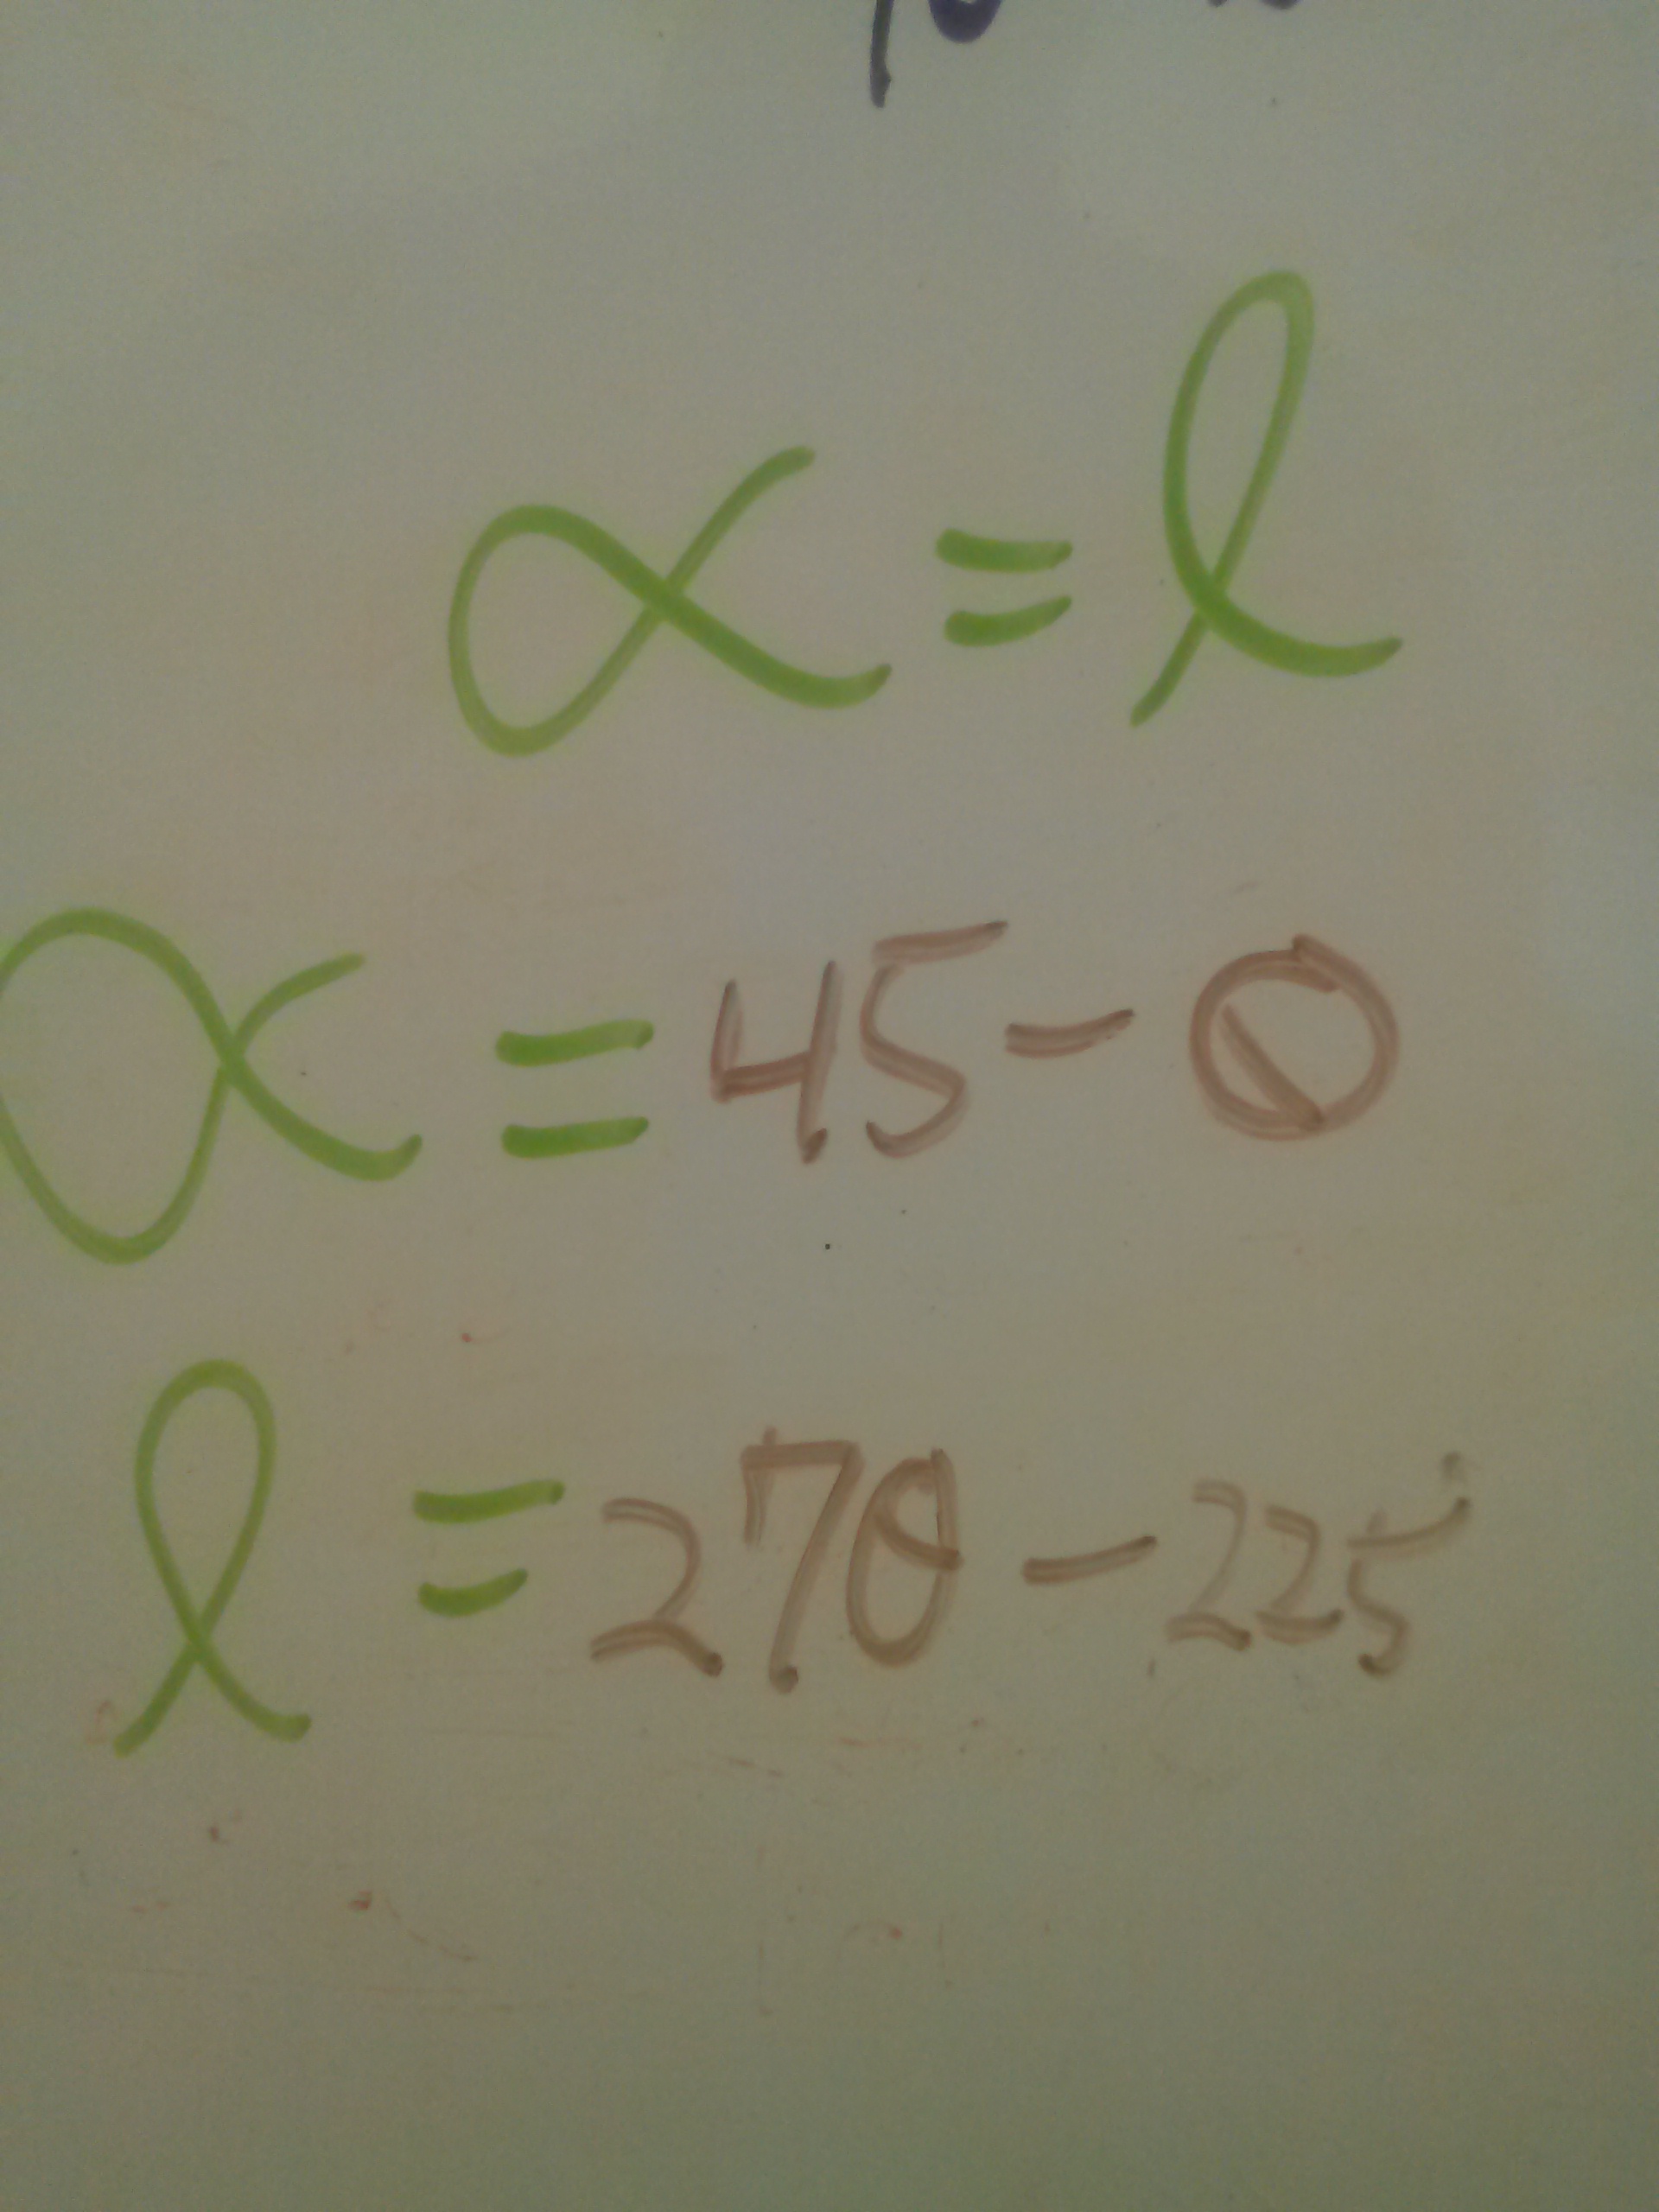 α = l
α = 45 - 0
l = 270 - 225